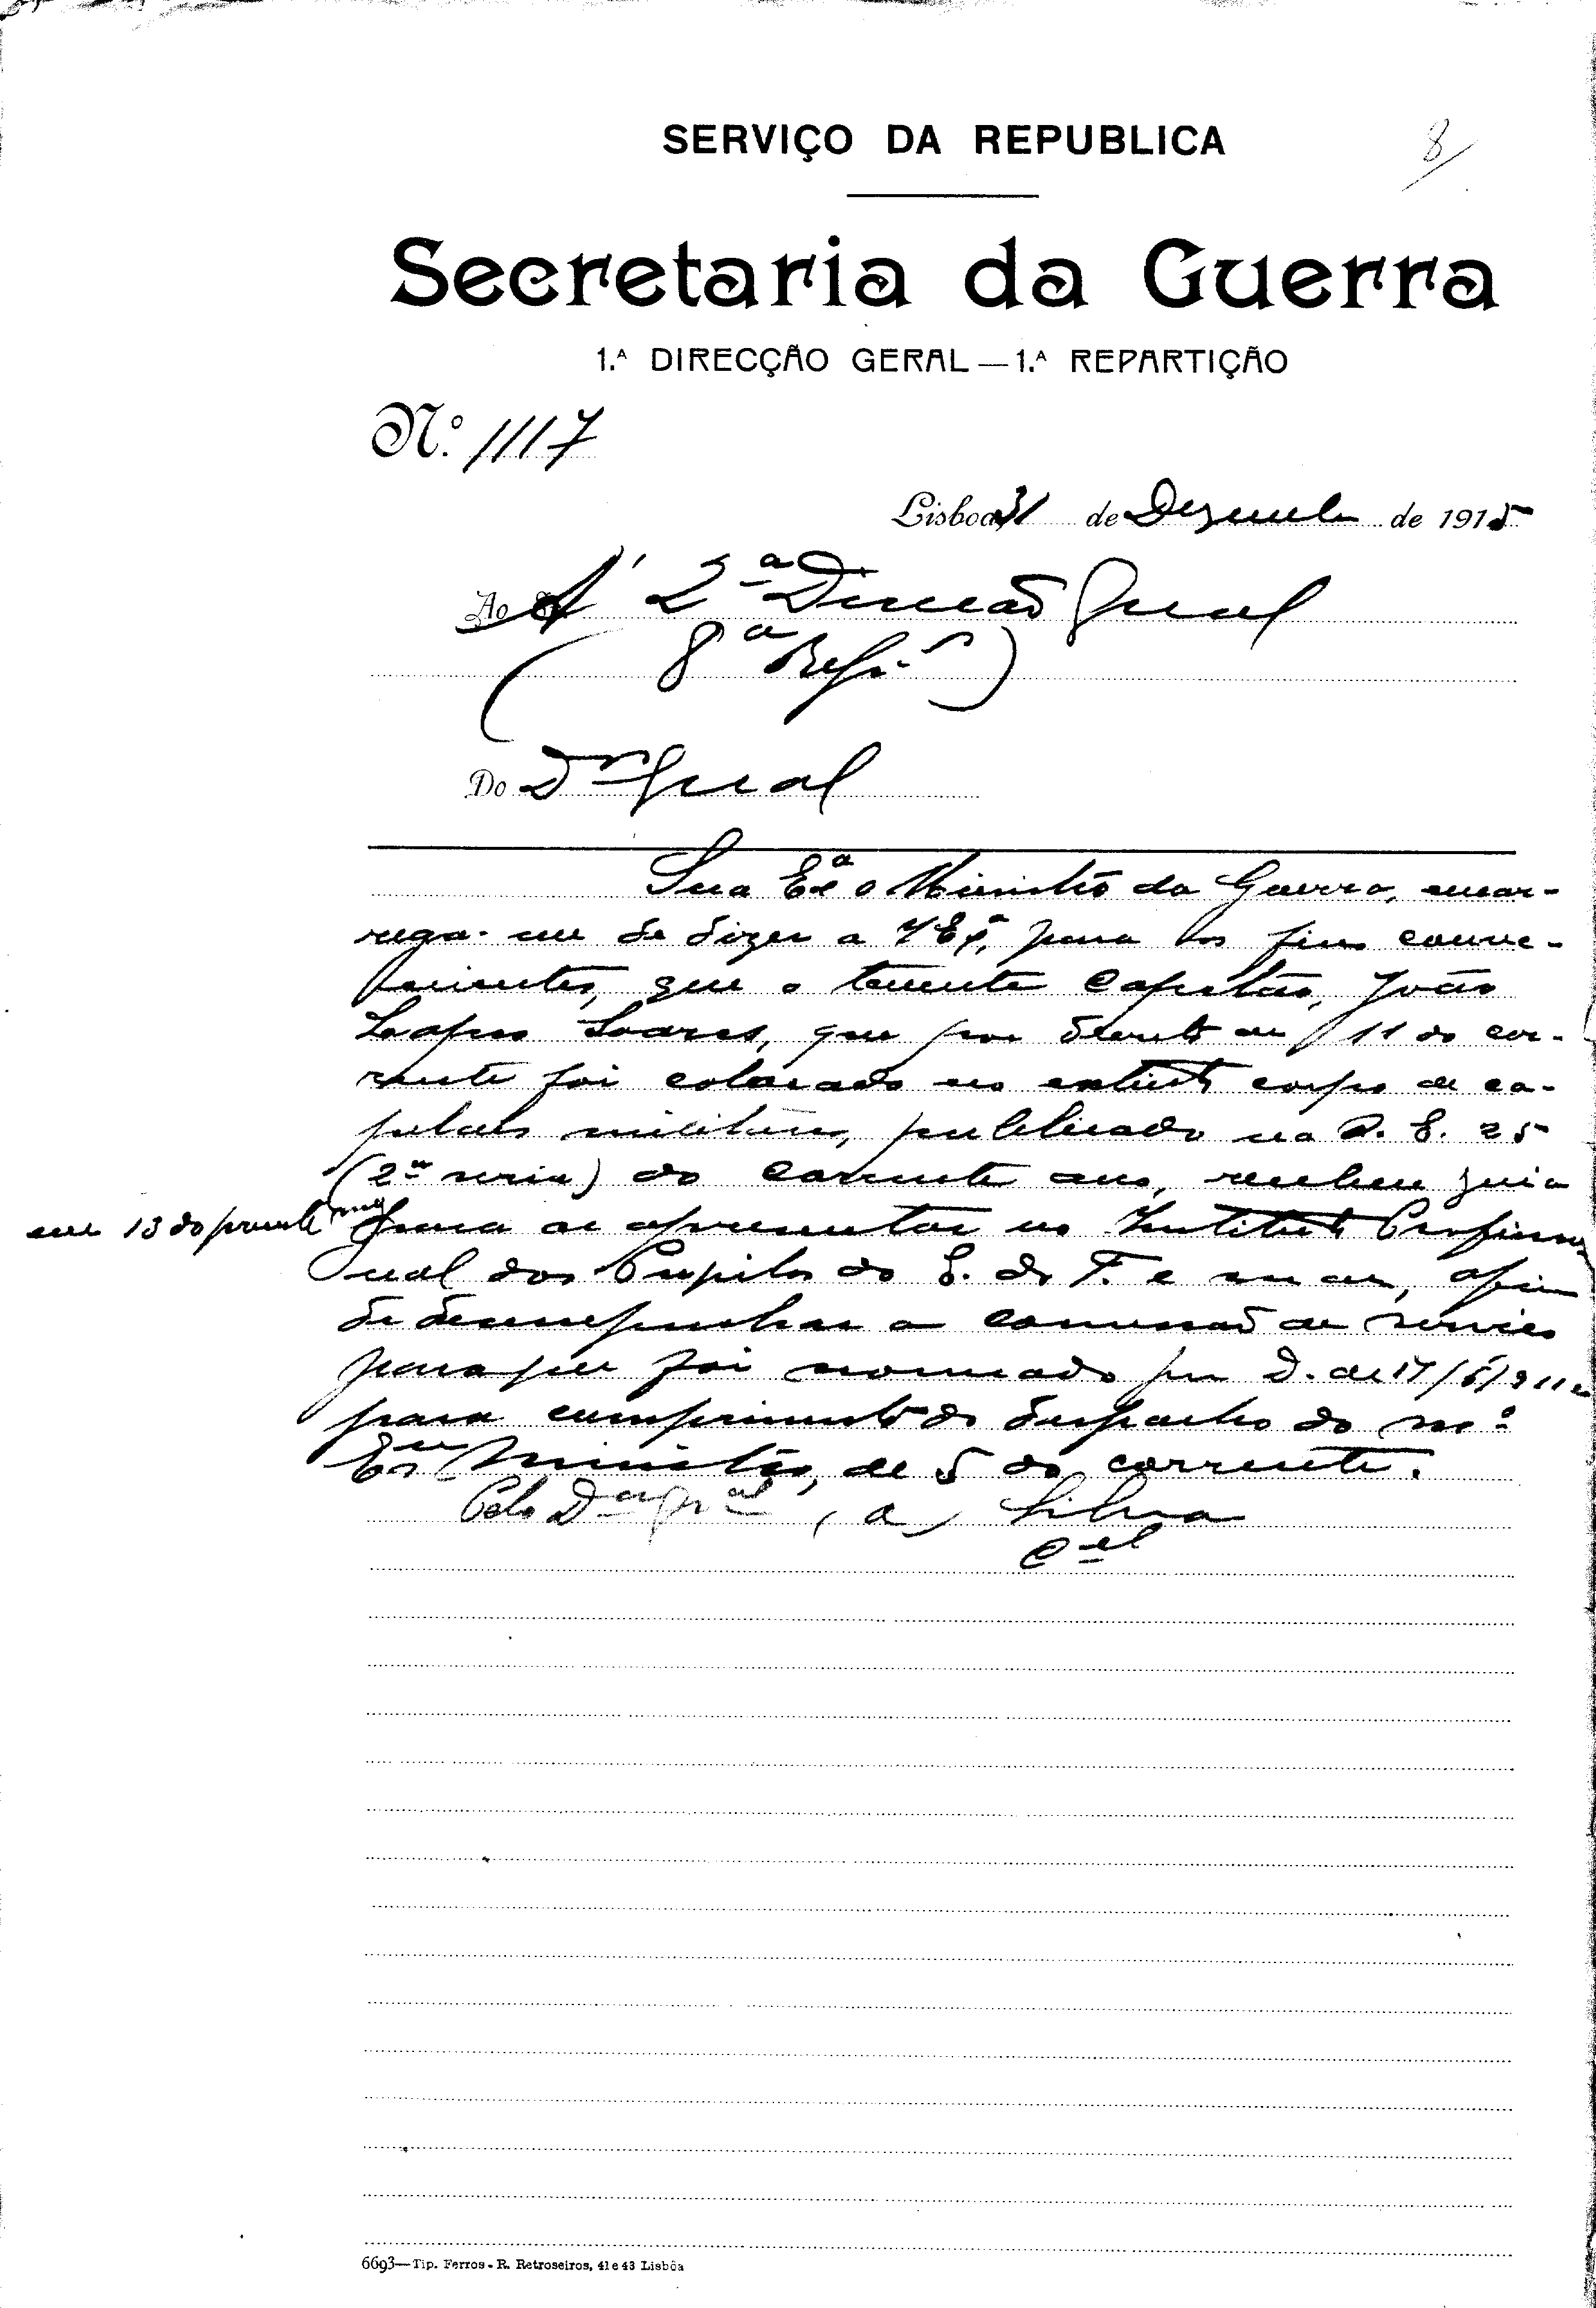 8
SERVIÇO DA REPUBLICA
Secretaria da Guerra
1.ª DIRECÇÃO GERAL — 1.ª REPARTIÇÃO
N.º 1117
Lisboa 31 de Dezembro de 1915
Ao Á 2ª Direcção Geral
(8ª Repão)
Do Dor Geral
Sua Exª o Ministro da Guerra, encar-
rega-me de dizer a V Exª, para os fins conve-
nientes, que o tenente capelão, João
Lopes Soares, que por decreto de 11 do cor-
rente foi colocado no extinto corpo de ca-
pelães militares, publicado na O. E. 25
(2ª serie) do corrente ano, recebeu guia
em 13 do presente mez
para se apresentar no Instituto Profissio-
nal dos Pupilos do E. de T. e mar, afim
de desempenhar a comissão de serviço
para que foi nomeado por D. de 17/6/911
para cumprimento do despacho do mo
Exmo Ministro, de 5 do corrente.
Pelo Dor gral, a) Silva
Cel
6693—Tip. Ferros - R. Retroseiros, 41 e 43 Lisbôa